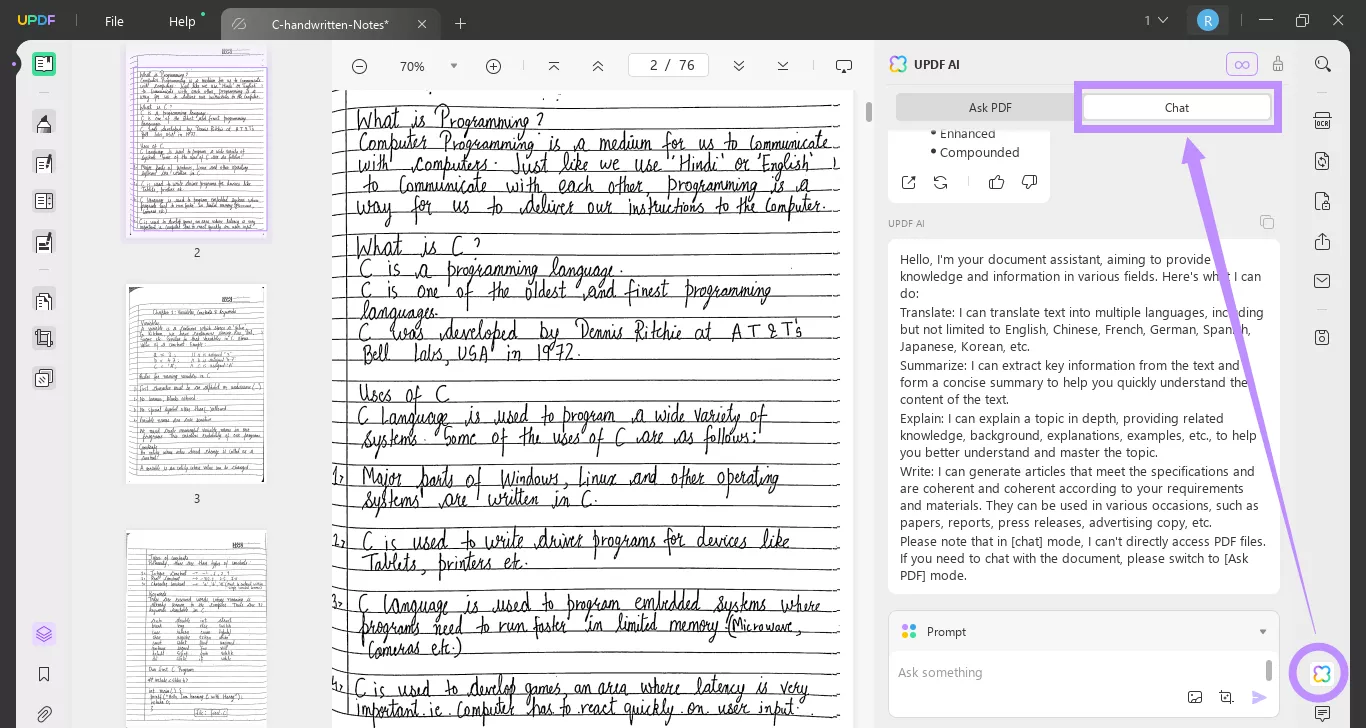 UPDF
File
Help
C-handwritten-Notes*
1
R
70%
2 / 76
UPDF AI
Ask PDF
Chat
OCR
2
3
What is Programming?
Computer Programming is a medium for us to Communicate
with computers. Just like we use 'Hindi' or 'English'
to Communicate with each other, programming is a
way for us to deliver our instructions to the Computer.
What is C?
C is a programming language.
C is one of the oldest and finest programming
languages.
C was developed by Dennis Ritchie at AT&T's
Bell Labs, USA in 1972.
Uses of C
C Language is used to program a wide variety of
systems. Some of the uses of C are as follows:
1. Major parts of Windows, Linux and other operating
systems are written in C.
2. C is used to write driver programs for devices like
Tablets, printers etc.
3. C language is used to program embedded systems where
programs need to run faster in limited memory (Microwave,
Cameras etc.)
4. C is used to develop games, an area where latency is very
important.ie. Computer has to react quickly on user input.
• Enhanced
• Compounded
UPDF AI
Hello, I'm your document assistant, aiming to provide
knowledge and information in various fields. Here's what I can
do:
Translate: I can translate text into multiple languages, including
but not limited to English, Chinese, French, German, Spanish,
Japanese, Korean, etc.
Summarize: I can extract key information from the text and
form a concise summary to help you quickly understand the
content of the text.
Explain: I can explain a topic in depth, providing related
knowledge, background, explanations, examples, etc., to help
you better understand and master the topic.
Write: I can generate articles that meet the specifications and
are coherent and coherent according to your requirements
and materials. They can be used in various occasions, such as
papers, reports, press releases, advertising copy, etc.
Please note that in [chat] mode, I can't directly access PDF files.
If you need to chat with the document, please switch to [Ask
PDF] mode.
Prompt
Ask something